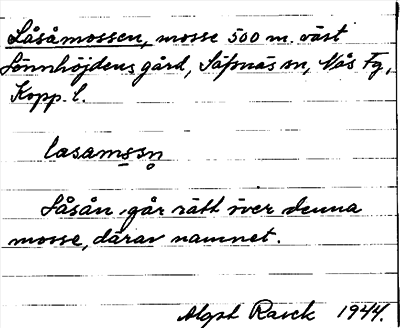 Låsåmossen, mosse 500 m. väst
Lönnhöjdens gård, Säfsnäs sn, Nås Fg,
Kopp. l.
lasamssn
Låsån går rätt över denna
mosse, därav namnet.
Algot Rasck 1944.